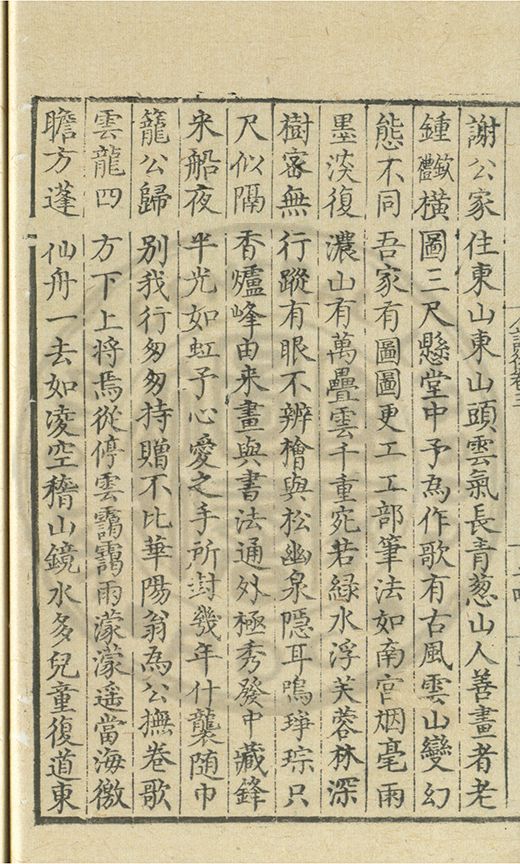 謝公家住東山東山頭雲氣長青葱山人善畫者老
鍾欽禮橫圖三尺懸堂中予為作歌有古風雲山變幻
態不同吾家有圖圖更工工部筆法如南宮烟毫雨
墨淡復濃山有萬疊雲千重宛若綠水浮芙蓉林深
樹密無行蹤有眼不辨檜與松幽泉隱耳鳴琤琮只
尺似隔香爐峰由来畫與書法通外極秀發中藏鋒
米船夜平光如虹予心愛之手所封幾年什襲随巾
籠公歸別我行匆匆持贈不比華陽翁為公撫卷歌
雲龍四方下上將焉從停雲靄靄雨濛濛遥當海徼
瞻方蓬仙舟一去如凌空稽山鏡水多兒童復道東